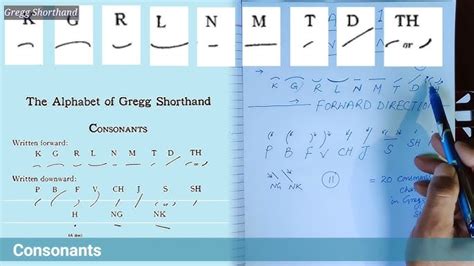 Gregg Shorthand
K G R L N M T D TH
or
The Alphabet of Gregg Shorthand
CONSONANTS
Written forward:
K G R L N M T D TH
Written downward:
P B F V CH J S SH
H NG NK
Consonants
K G R L N M T D
FORWARD DIRECTION
P B F V CH J S SH
NG NK
11
= 20 consonants
in Gregg